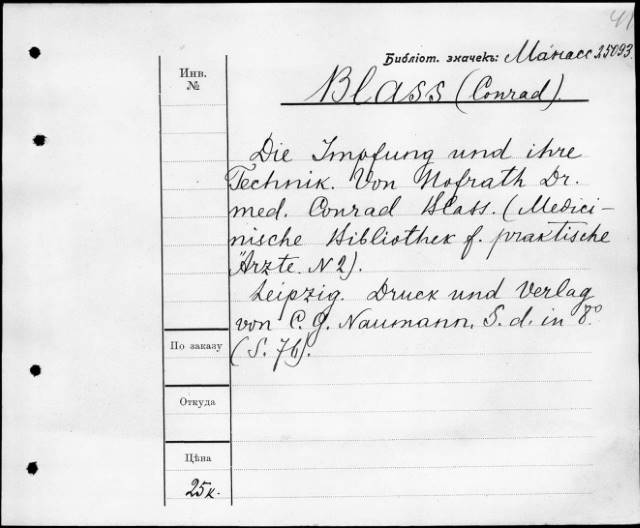 41
Библіот. значекъ: Манасс 25093
Инв.
№
Blass (Conrad)
Die Impfung und ihre
Technik. Von Hofrath Dr.
med. Conrad Blass. (Medici-
nische Bibliothek f. praktische
Ärzte. N 2).
Leipzig. Druck und Verlag
von C. G. Naumann. S. d. in 8º
(S. 76).
По заказу
Откуда
Цѣна
25к.